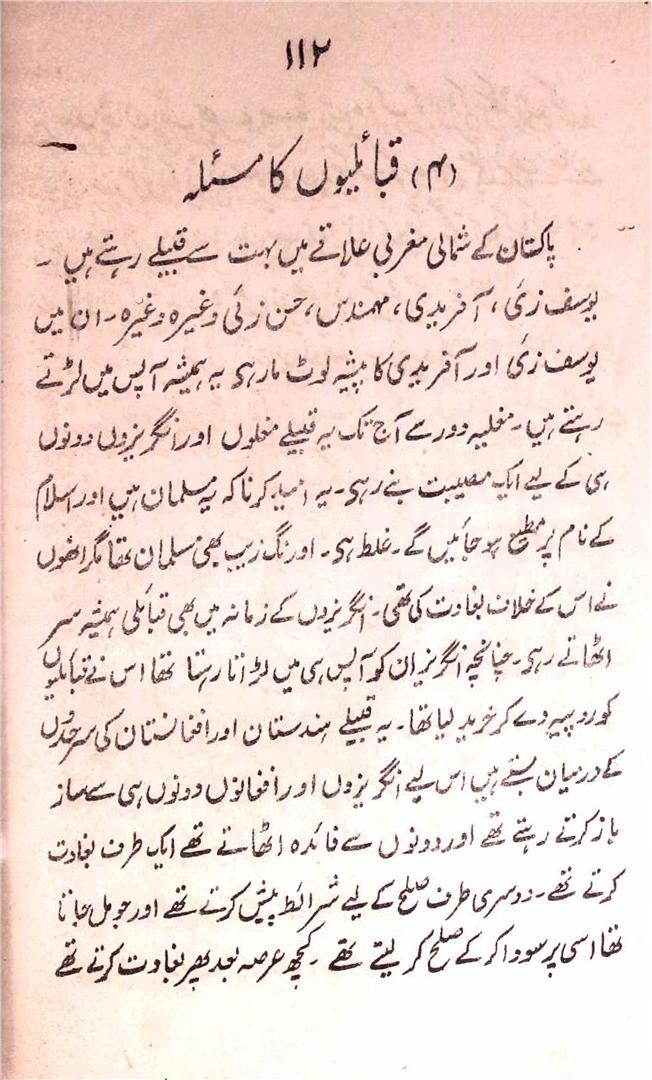 ۱۱۲
(۴) قبائلیوں کا مسئلہ
پاکستان کے شمالی مغربی علاقے میں بہت سے قبیلے رہتے ہیں ۔
یوسف زئی ، آفریدی ، مہمند، حسن زئی وغیرہ وغیرہ ۔ ان میں
یوسف زئی اور آفریدی کا پیشہ لوٹ مار ہی یہ ہمیشہ آپس میں لڑتے
رہتے ہیں ۔ مغلیہ دور سے آج تک یہ قبیلے مغلوں اور انگریزوں دونوں
ہی کے لیے ایک مصیبت بنے رہی ۔ یہ امید کرنا کہ یہ مسلمان ہیں اور اسلام
کے نام پر مطیع ہو جائیں گے ۔ غلط ہی ۔ اورنگ زیب بھی مسلمان تھا مگر انھوں
نے اس کے خلاف بغاوت کی تھی ۔ انگریزوں کے زمانہ میں بھی قبائلی ہمیشہ سر
اٹھاتے رہی ۔ چنانچہ انگریز ان کو آپس ہی میں لڑاتا رہتا تھا اس نے قبائلیوں
کو روپیہ دے کر خرید لیا تھا ۔ یہ قبیلے ہندستان اور افغانستان کی سرحدوں
کے درمیان بستے ہیں اس لیے انگریزوں اور افغانوں دونوں ہی سے ساز
باز کرتے رہتے تھے اور دونوں سے فائدہ اٹھاتے تھے ایک طرف بغاوت
کرتے تھے ۔ دوسری طرف صلح کے لیے شرائط پیش کرتے تھے اور جو مل جاتا
تھا اسی پر سودا کر کے صلح کر لیتے تھے ۔ کچھ عرصہ بعد پھر بغاوت کرتے تھے